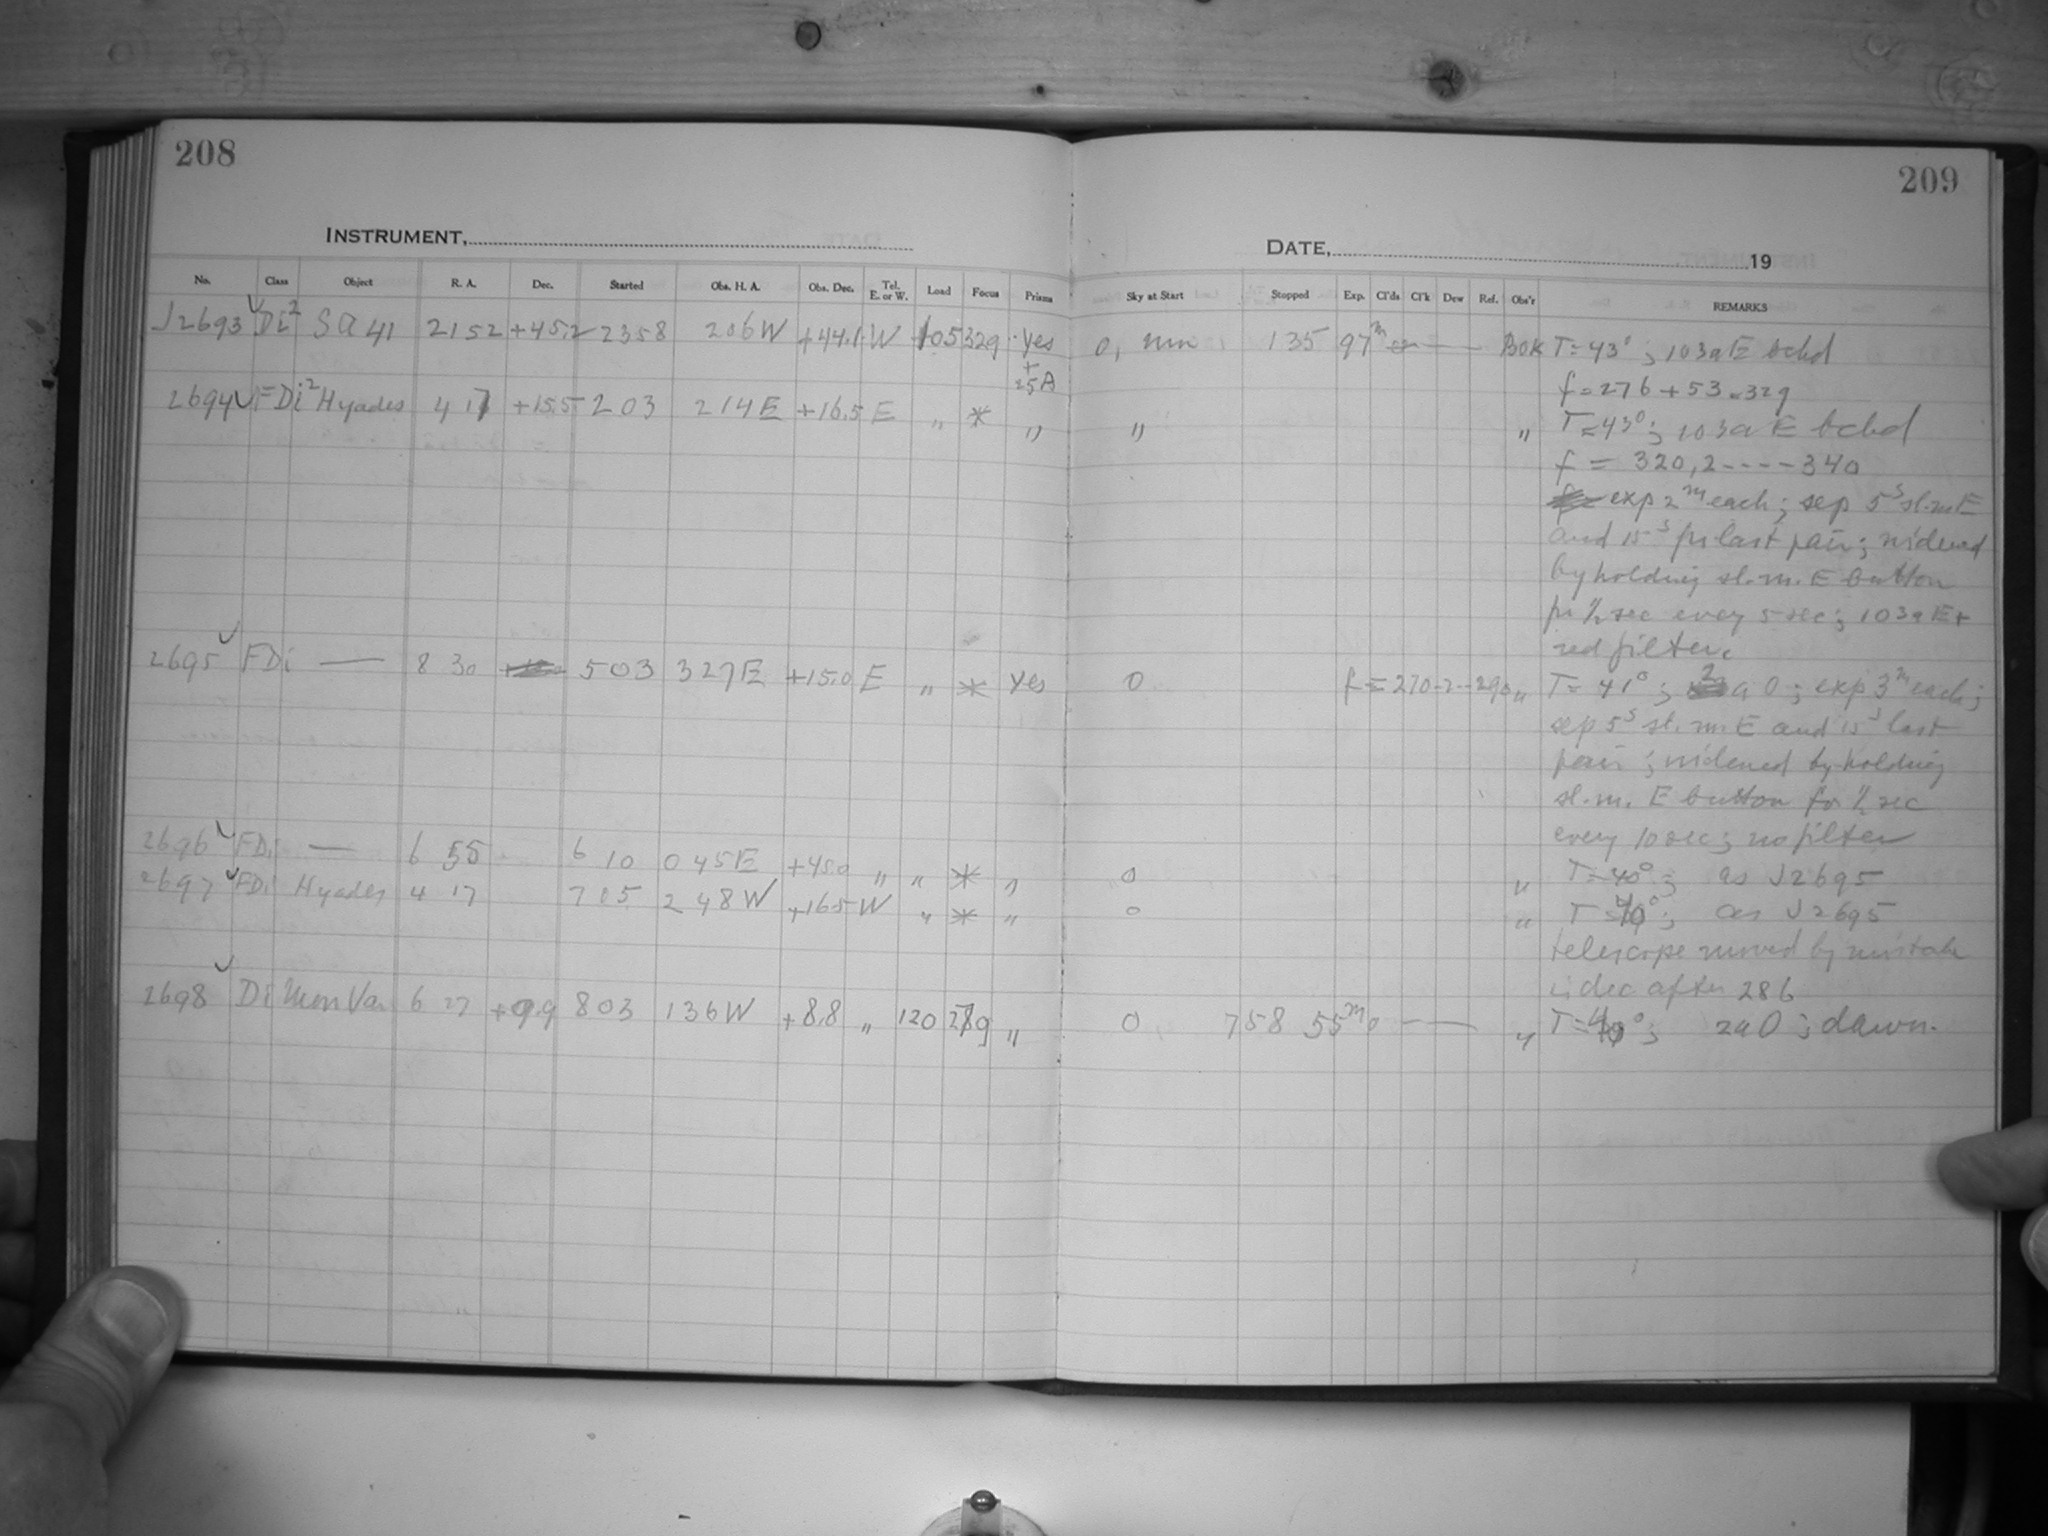 208
209
INSTRUMENT,
DATE, 19
No. Class Object R. A. Dec. Started Obs. H. A. Obs. Dec. Tel. E. or W. Load Focus Prisms Sky at Start Stopped Exp. Cl'ds Cl'k Dew Ref. Obs'r REMARKS
J2693 Di² SA 41 21 52 +45.2 23 58 2 06 W +44.1 W 105 329 Yes 0, 1 35 97ᵐ BOK T=43°; 103aE bckd
+ 25A f=276+53=329
2694 FDi² Hyades 4 17 +15.5 2 03 2 14 E +16.5 E " * " " " T=43°; 103aE bckd
f = 320,2----340
exp 2ᵐ each; sep 5ˢ sl.m E
and 15ˢ for last pair; widened
by holding sl.m. E button
for ½ sec every 5 sec; 103aE+
red filter.
2695 FDi — 8 30 5 03 3 27 E +15.0 E " * Yes 0 f=270-2--290 " T=41°; 2aO; exp 3ᵐ each;
sep 5ˢ sl.m.E and 15ˢ last
pair; widened by holding
sl.m. E button for ½ sec
every 10 sec; no filter
2696 FDi — 6 55 6 10 0 45 E +45.0 " " * " 0 " T=40°; as J2695
2697 FDi Hyades 4 17 7 05 2 48 W +16.5 W " * " 0 " T=40°; as J2695
telescope moved by mistake
in dec after 286
2698 Di Mon Var 6 27 +9.9 8 03 1 36 W +8.8 " 120 289 " 0 7 58 55ᵐ 0 — " T=40°; 2aO; dawn.